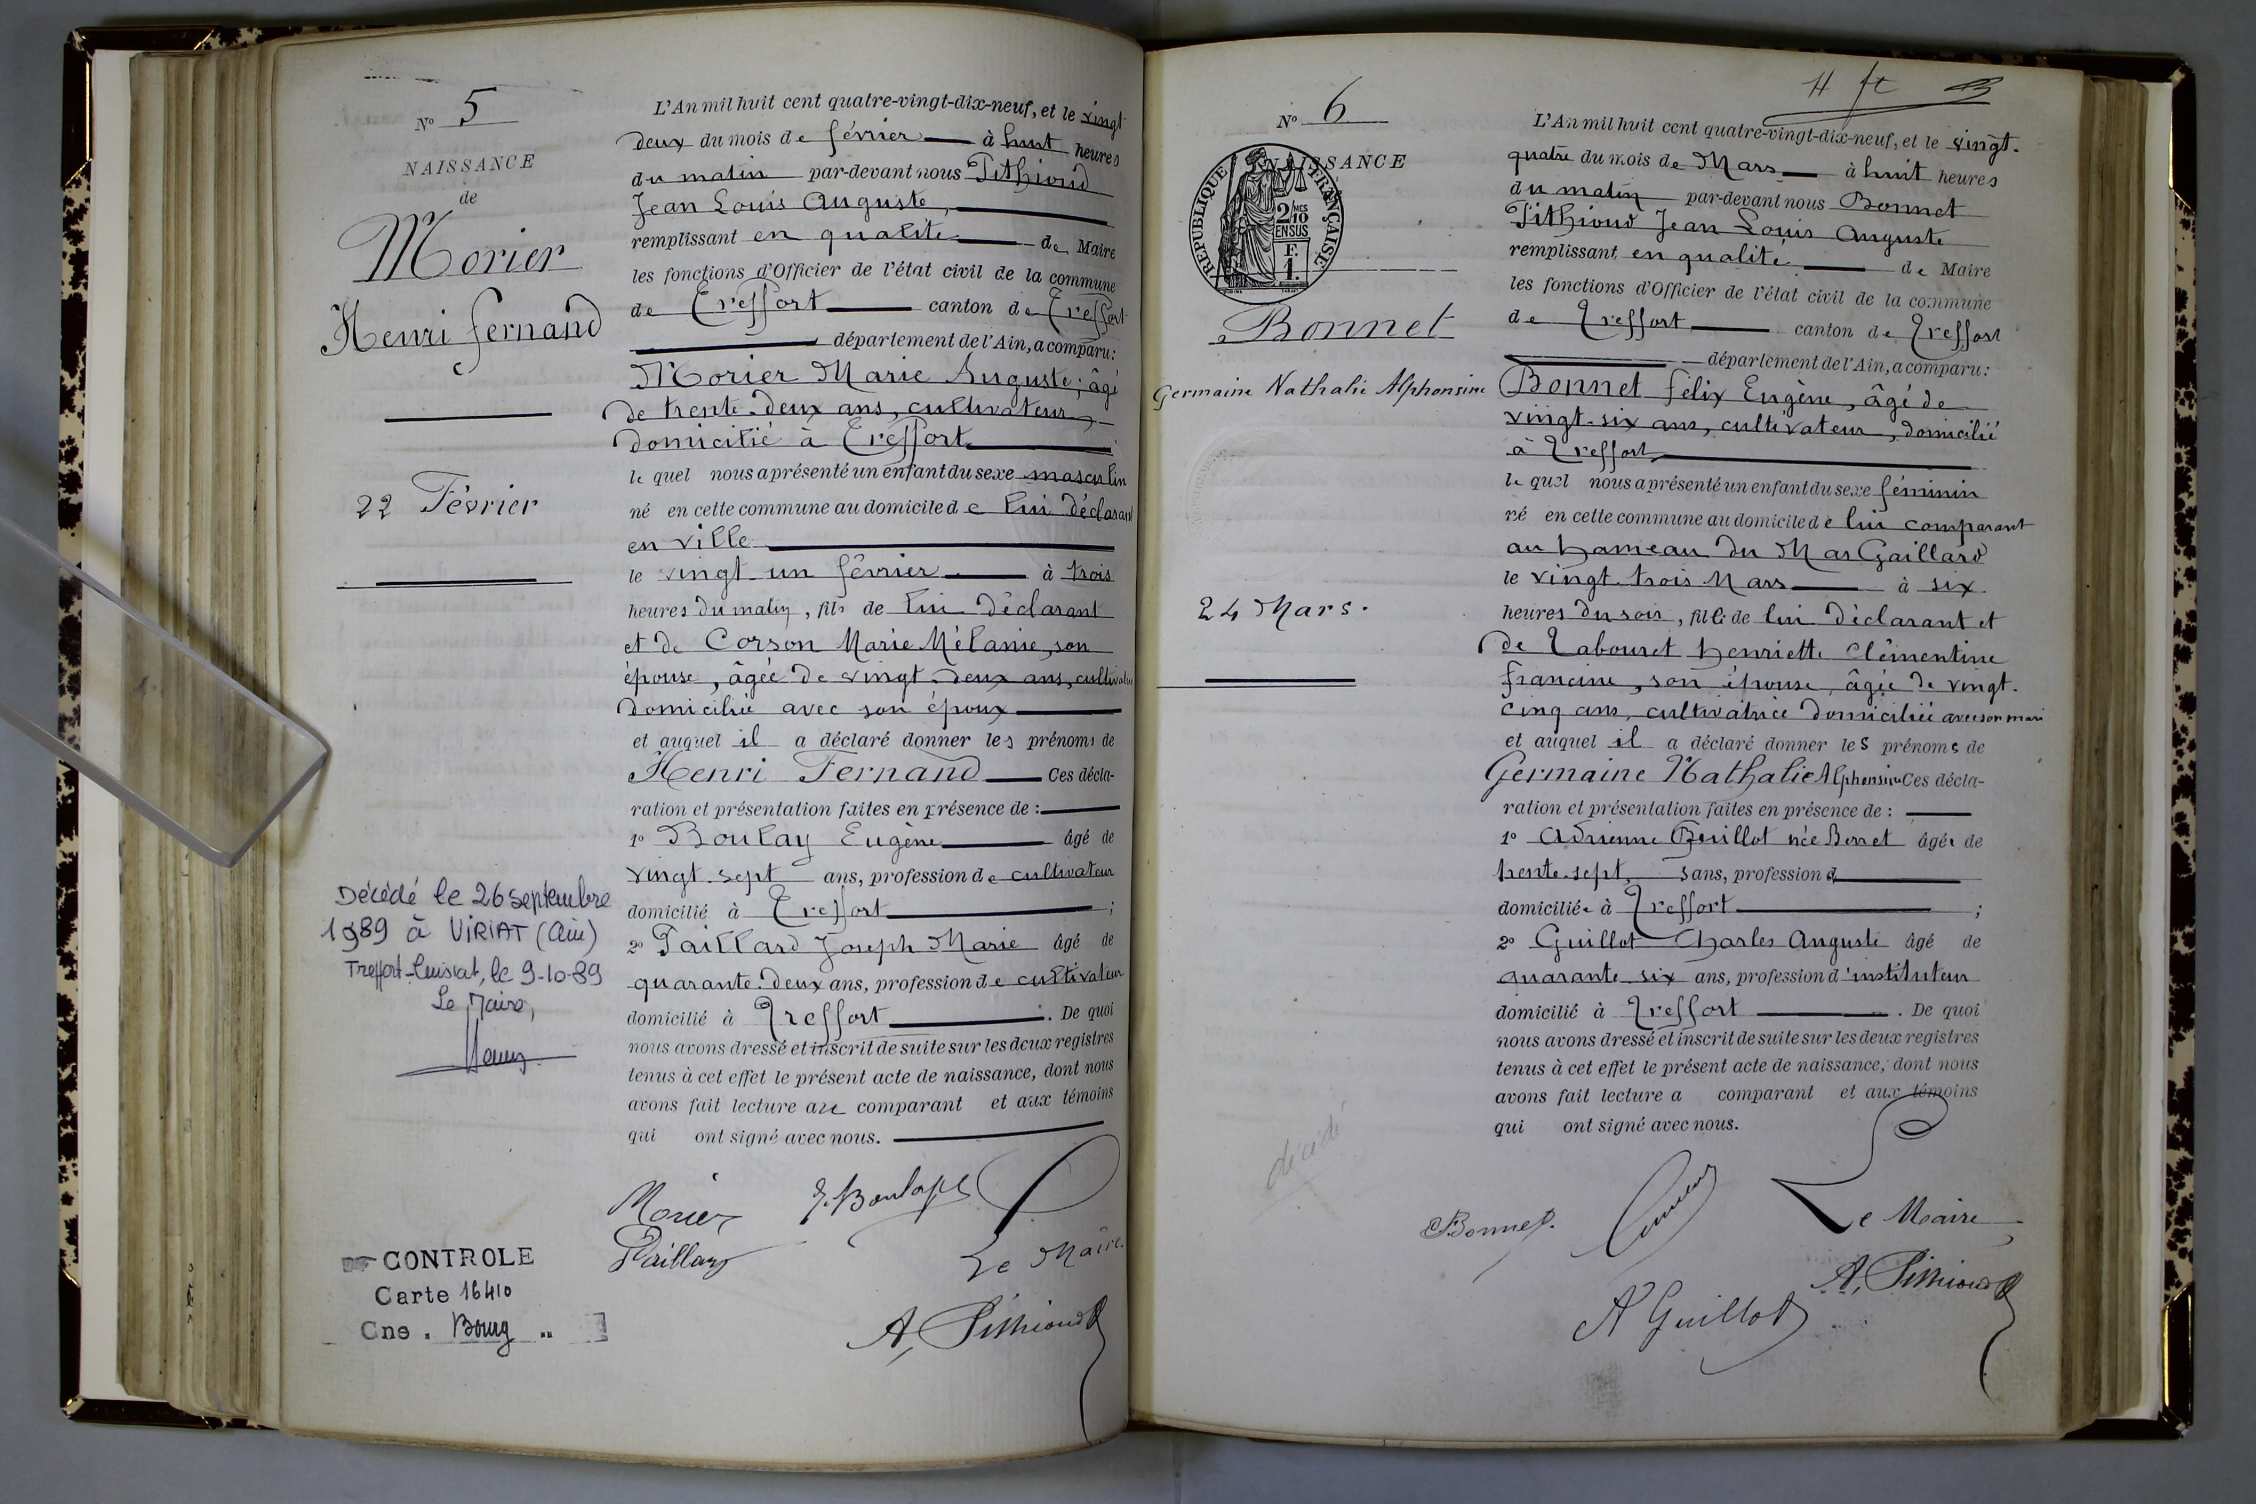 No 5
NAISSANCE
de
Morier
Henri Fernand
22 Février
Décédé le 26 septembre
1989 à VIRIAT (Ain)
Treffort-Cuisiat, le 9-10-89
Le Maire,
CONTROLE
Carte 16410
Cne . Bourg "
L'An mil huit cent quatre-vingt-dix-neuf, et le vingt
deux du mois de février à huit heures
du matin par-devant nous Pithioud
Jean Louis Auguste,
remplissant en qualité de Maire
les fonctions d'Officier de l'état civil de la commune
de Treffort canton de Treffort
département de l'Ain, a comparu:
Morier Marie Auguste, âgé
de trente-deux ans, cultivateur,
domicilié à Treffort
le quel nous a présenté un enfant du sexe masculin
né en cette commune au domicile de lui déclarant
en ville
le vingt-un février à trois
heures du matin, fils de lui déclarant
et de Corson Marie Mélanie, son
épouse, âgée de vingt-deux ans,
domiciliée avec son époux
et auquel il a déclaré donner les prénoms de
Henri Fernand Ces décla-
ration et présentation faites en présence de :
1º Boulay Eugène âgé de
vingt-sept ans, profession de cultivateur
domicilié à Treffort ;
2º Paillard Joseph Marie âgé de
quarante-deux ans, profession de cultivateur
domicilié à Treffort . De quoi
nous avons dressé et inscrit de suite sur les deux registres
tenus à cet effet le présent acte de naissance, dont nous
avons fait lecture au comparant et aux témoins
qui ont signé avec nous.
Morier E. Boulay
Paillard Le Maire
A. Pithioud
No 6
NAISSANCE
REPUBLIQUE FRANÇAISE
2/10 MES
EN SUS
F.
1.
Bonnet
Germaine Nathalie Alphonsine
24 Mars.
décédé
L'An mil huit cent quatre-vingt-dix-neuf, et le vingt-
quatre du mois de Mars à huit heures
du matin par-devant nous Bonnet
Pithioud Jean Louis Auguste
remplissant en qualité de Maire
les fonctions d'Officier de l'état civil de la commune
de Treffort canton de Treffort
département de l'Ain, a comparu:
Bonnet félix Eugène, âgé de
vingt-six ans, cultivateur, domicilié
à Treffort
le quel nous a présenté un enfant du sexe féminin
né en cette commune au domicile de lui comparant
au hameau du Mas Gaillard
le vingt-trois Mars à six
heures du soir, fille de lui déclarant et
de Tabouret Henriette Clémentine
francine, son épouse, âgée de vingt-
cinq ans, cultivatrice domiciliée avec son mari
et auquel il a déclaré donner les prénoms de
Germaine Nathalie Alphonsine Ces décla-
ration et présentation faites en présence de :
1º Adrienne née âgée de
trente-sept ans, profession d
domiciliée à Treffort ;
2º Guillot Charles Auguste âgé de
quarante-six ans, profession d'instituteur
domicilié à Treffort . De quoi
nous avons dressé et inscrit de suite sur les deux registres
tenus à cet effet le présent acte de naissance, dont nous
avons fait lecture a comparant et aux témoins
qui ont signé avec nous.
Bonnet Le Maire
A. Pithioud
A Guillot